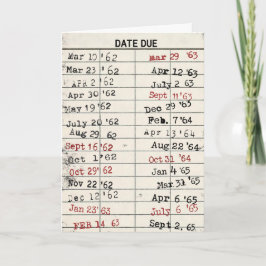 DATE DUE
Mar 10 '62 Mar 29 '63
Mar 23 '62 Apr 12 '63
APR 2 '62 Sept 11 '63
Apr 30 '62 Dec 29 '63
May 19 '62 Feb. 7 '64
July 20 '62 Apr 13 '64
Aug 29 '62 Aug 22 '64
Sept 16 '62 Oct 31 '64
Oct 1 '62 Jan 4 '65
Oct 29 '62 Mar 31 '65
Nov 22 '62 Apr 6 '65
Dec 12 '62 July 6 '65
Jan 23 '63 Sept 2, 65
FEB 14 63